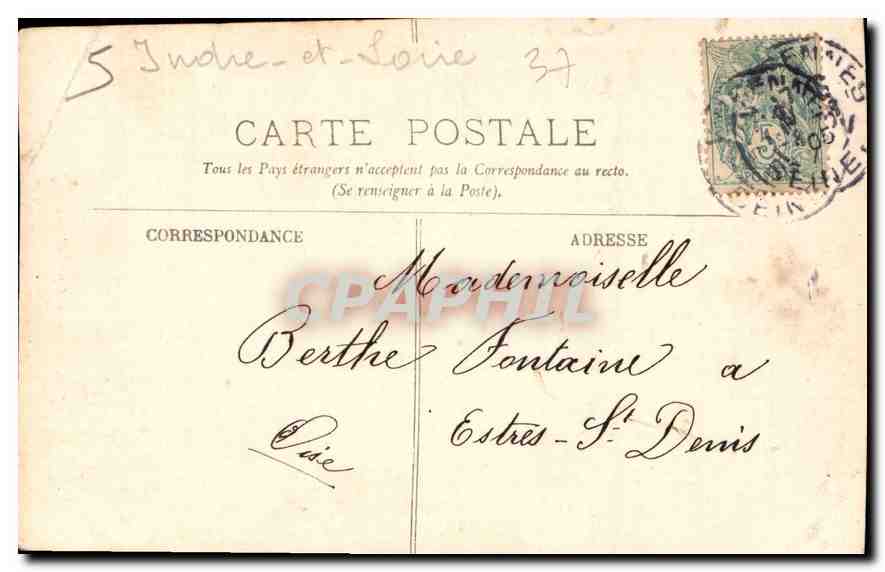 5 Indre-et-Loire 37
CARTE POSTALE
Tous les Pays étrangers n'acceptent pas la Correspondance au recto.
(Se renseigner à la Poste).
CORRESPONDANCE
ADRESSE
CPAPHIL
Mademoiselle
Berthe Fontaine a
Estrés-St Denis
Oise